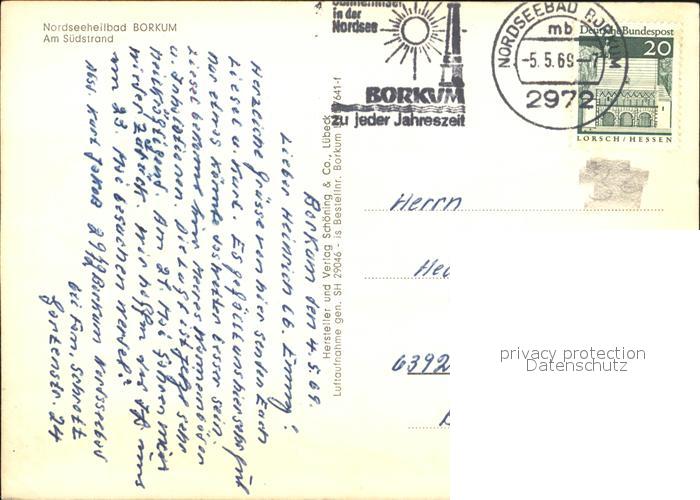 Nordseeheilbad BORKUM
Am Südstrand
Sonneninsel
in der
Nordsee
BORKUM
zu jeder Jahreszeit
NORDSEEBAD BORKUM
mb
-5.5.69-7
2972
Deutsche Bundespost
20
LORSCH/HESSEN
Hersteller und Verlag Schöning & Co., Lübeck
Luftaufnahme gen. SH 29046 - is Bestellnr. Borkum 641-f
Borkum den 4.5.69.
Lieber Heinrich lb. Emmy!
Herzliche Grüsse von hier senden Euch
Liesel u. Kurt. Es gefällt uns hier sehr gut
Nur etwas könnte das Wetter besser sein.
Liesel bekommt hier Meereswannenbäder
u. Inhalationen. Die Luft ist
Am 27 Mai fahren wir
wieder zurück. Wir hoffen das Ihr uns
besuchen werdet?
Abs. Kurt 2972 Borkum Nordseebad
bei Fam. Schrott
Gartenstr. 24
Herrn
Hei
6392
privacy protection
Datenschutz